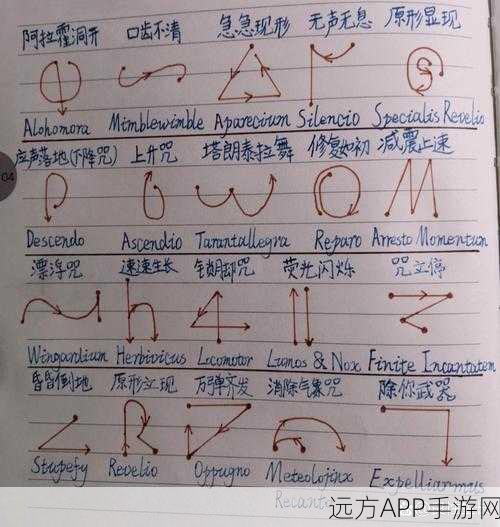 阿拉霍洞开 口齿不清 急急现形 无声无息 原形显现
Alohomora Mimblewimble Aparecium Silencio Specialis Revelio
应声落地(下降咒) 上升咒 塔朗泰拉舞 修复如初 减震止速
04
Descendo Ascendio Tarantallegra Reparo Arresto Momentum
漂浮咒 速速生长 锁腿咒 荧光闪烁 咒立停
Wingardium Herbivicus Locomotor Lumos & Nox Finite Incantatem
昏昏倒地 原形立现 万弹齐发 消除气象咒 除你武器
Stupefy Revelio Oppugno Meteolojinx Expelliarmus
Recanto
远方APP手游网